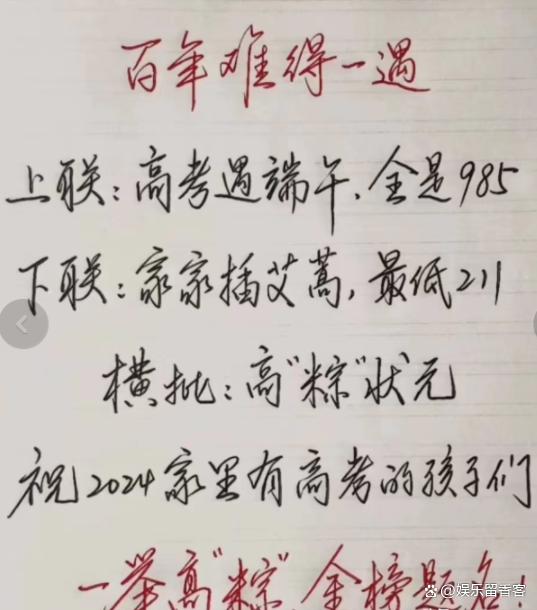 百年难得一遇
上联:高考遇端午,全是985
下联:家家插艾蒿,最低211
横批:高"粽"状元
祝2024家里有高考的孩子们
一举高"粽"金榜题名!
@娱乐留香客